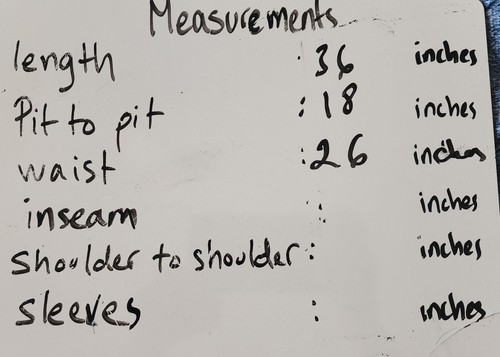 Measurements
length : 36 inches
Pit to pit : 18 inches
waist : 26 inches
inseam : inches
shoulder to shoulder : inches
sleeves : inches